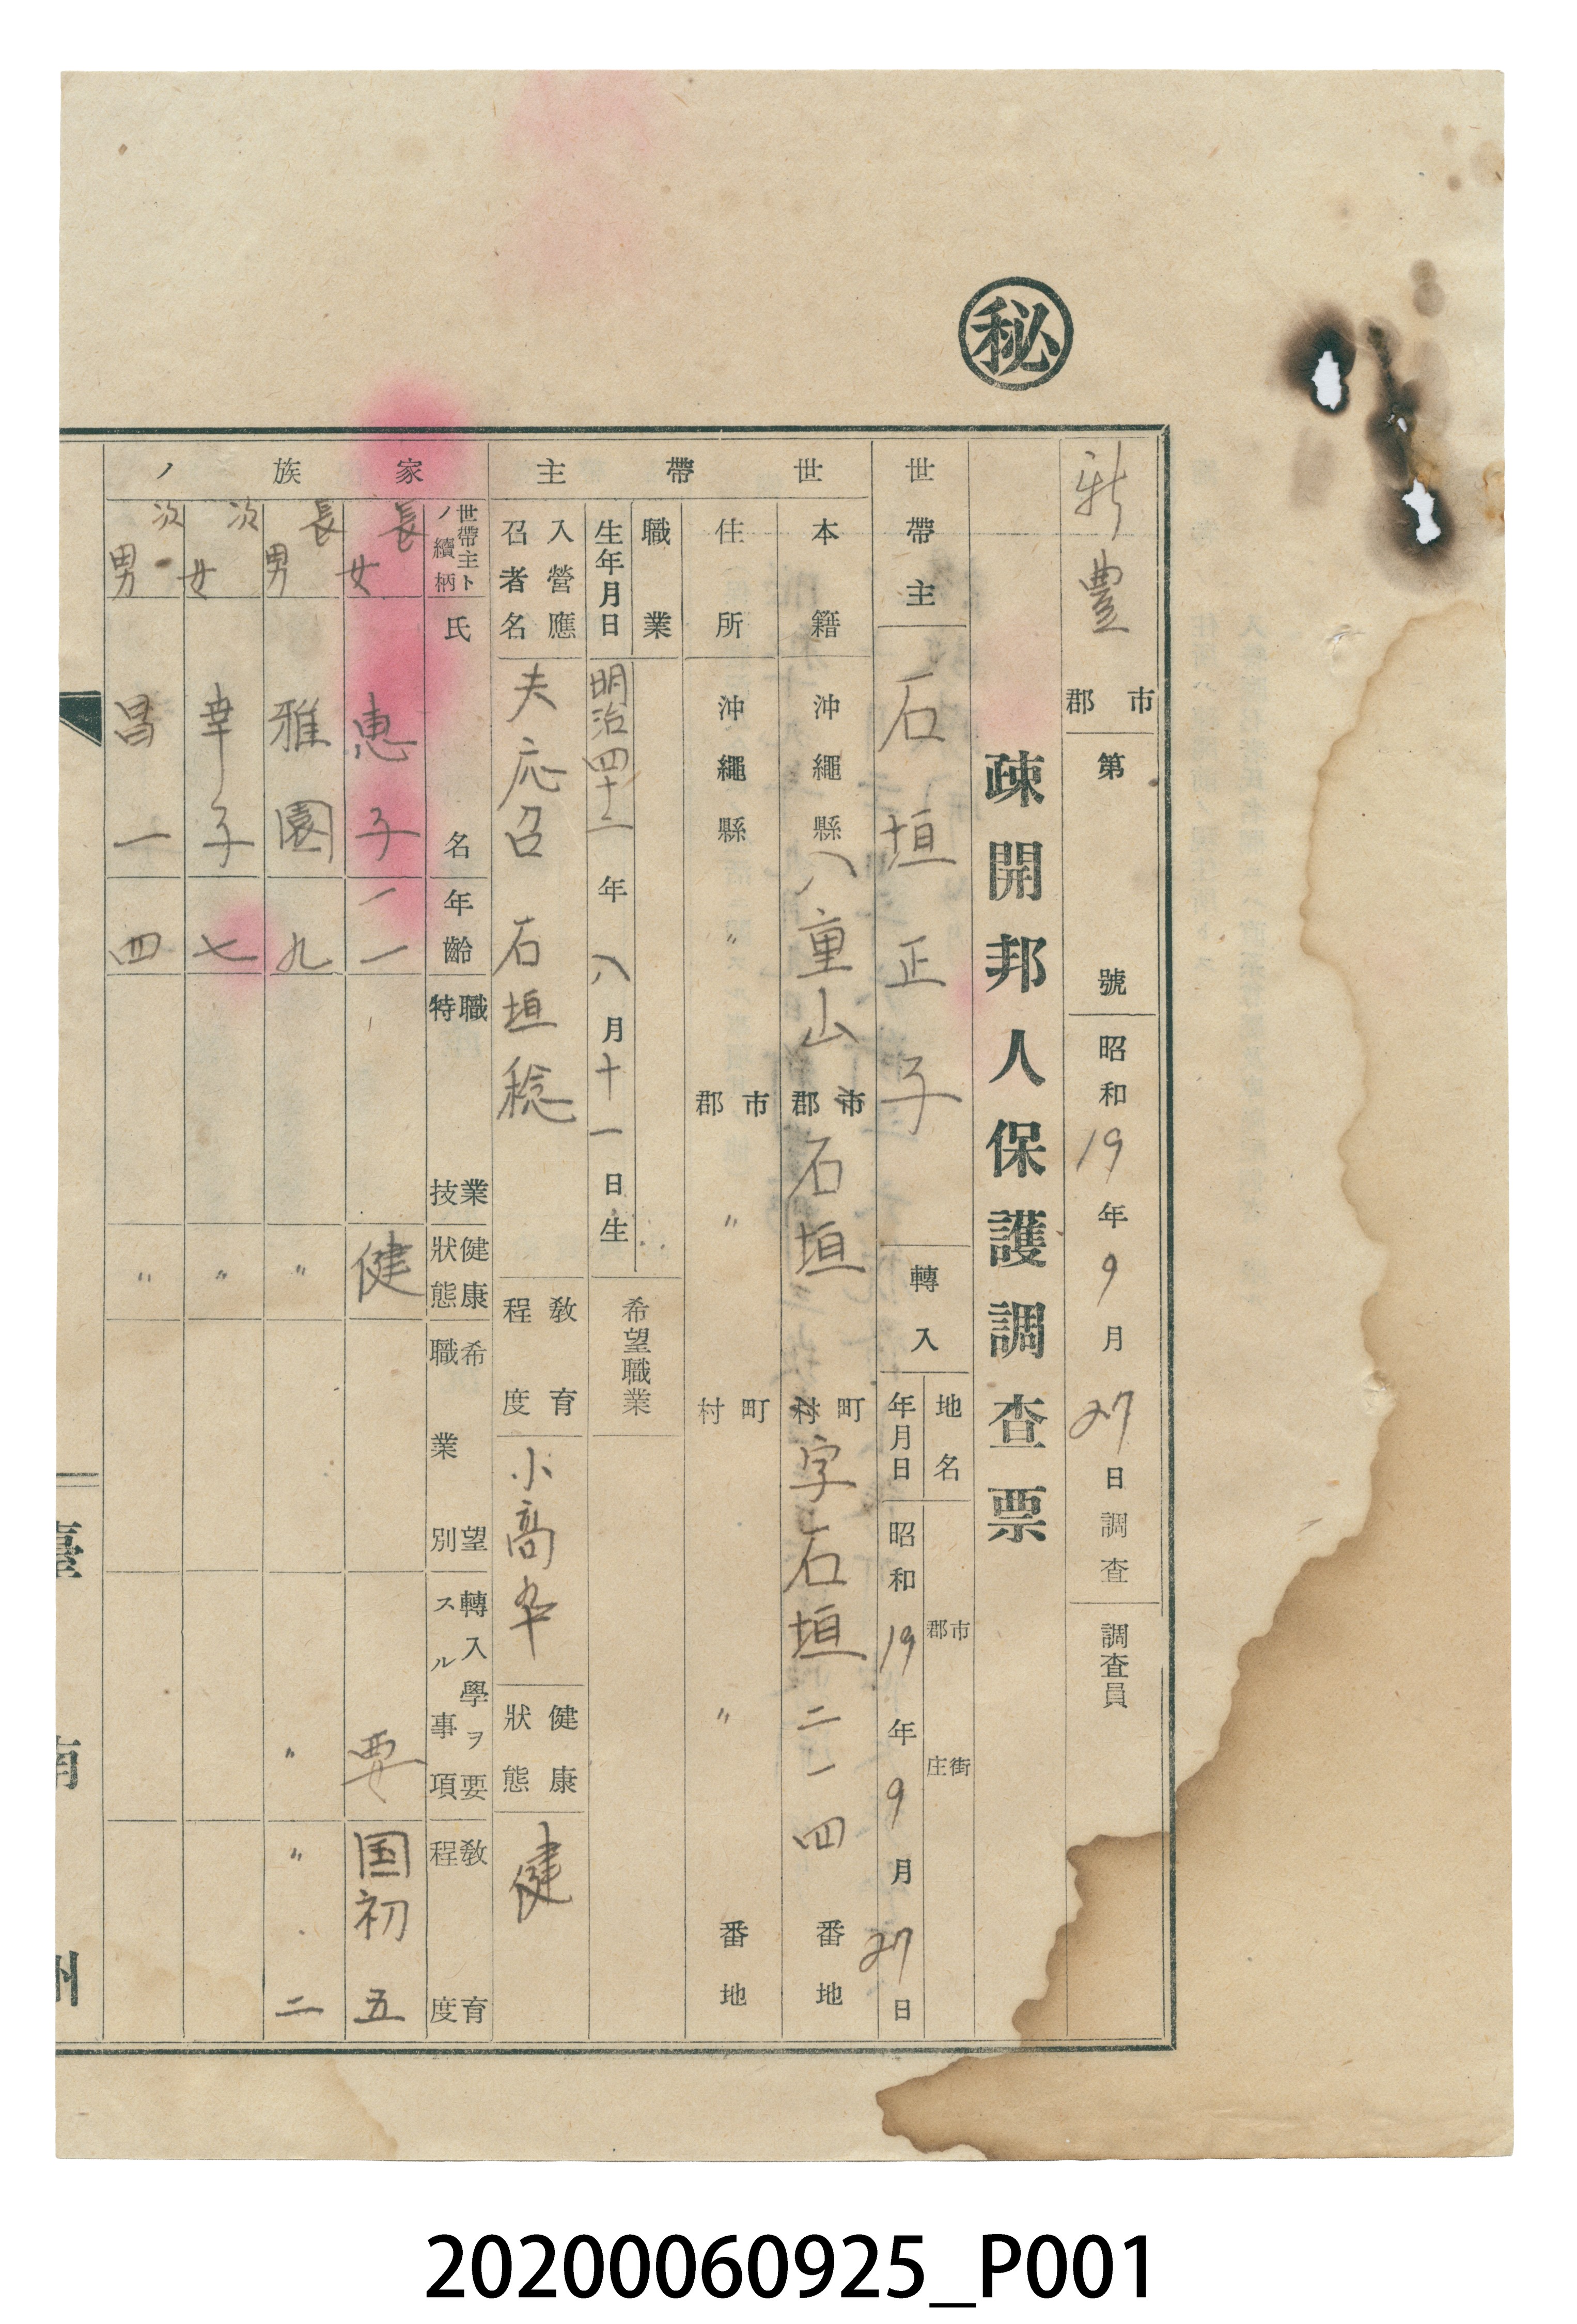 秘
新豐 市郡 第 號 昭和19年9月27日調査 調査員
疎開邦人保護調査票
世帶主 石垣正子 轉入 地名 市郡 街庄
年月日 昭和19年9月27日
世帶主
本籍 沖繩縣八重山市郡石垣町村字石垣二一四番地
住所 沖繩縣 〃 市郡 〃 町村 〃 番地
職業 希望職業
生年月日 明治四十二年八月十一日生
入營應召者名 夫応召 石垣稔 教育程度 小高卆 健康狀態 健
家族ノ
世帶主トノ續柄 氏名 年齡 職業特技 健康狀態 希望職業別 轉入學ヲ要スル事項 教育程度
長女 惠子 一一 健 要 国初五
長男 雅園 九 〃 〃 〃 二
次女 幸子 七 〃
次男 昌一 四 〃
臺南州
20200060925_P001